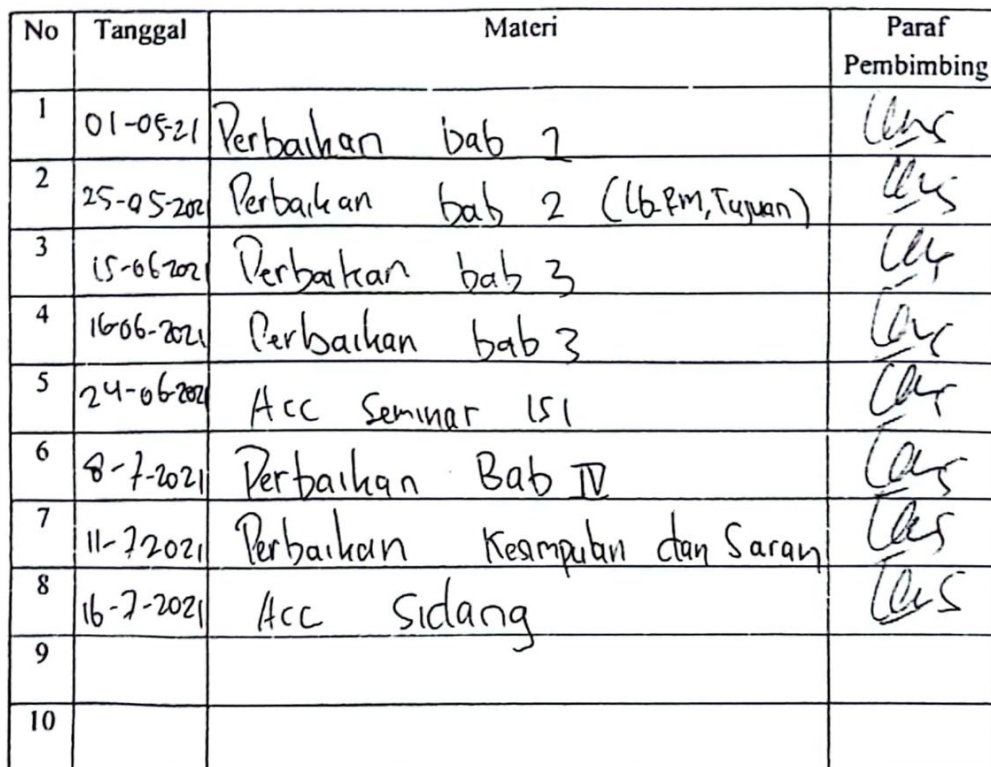 No Tanggal Materi Paraf Pembimbing
1 01-05-21 Perbaikan bab 1
2 25-05-2021 Perbaikan bab 2 (Lb.RM, Tujuan)
3 15-06 2021 Perbaikan bab 3
4 16-06-2021 Perbaikan bab 3
5 24-06-2021 Acc Seminar ISI
6 8-7-2021 Perbaikan Bab IV
7 11-7 2021 Perbaikan Kesimpulan dan Saran
8 16-7-2021 Acc Sidang
9
10